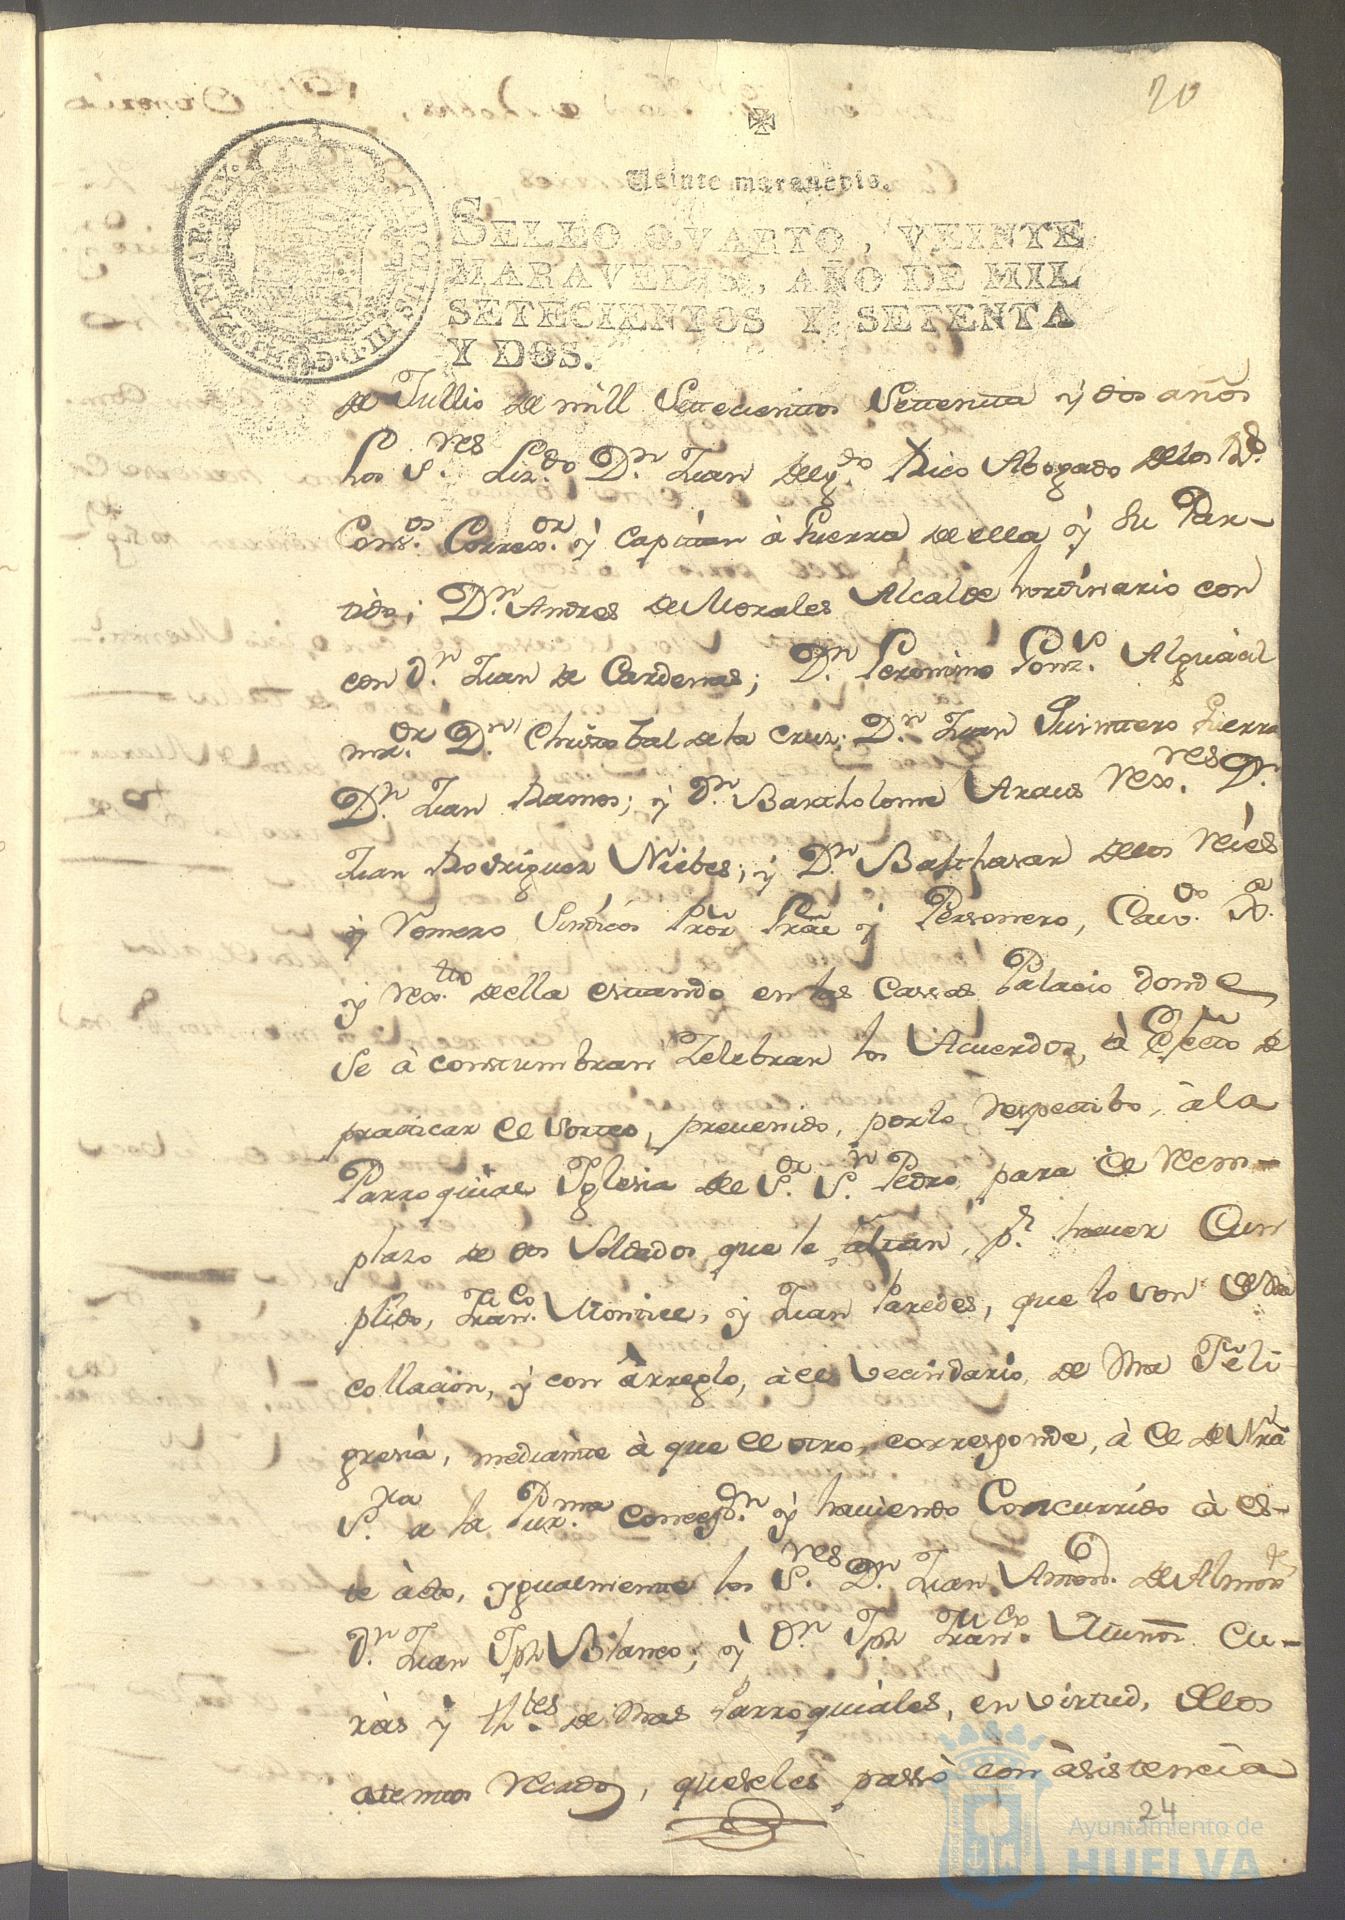 20
Veinte marauedis.
SELLO QVARTO, VEINTE
MARAVEDIS, AÑO DE MIL
SETECIENTOS Y SETENTA
Y DOS.
CAROLUS III D.G. HISPANIAR. REX
de Jullio de mill Settecientos Settenta y dos años
los S.res Liz.do D.n Juan Delg.do Rico Abogado delos R.s
Cons.os Correx.or y Capitan à Guerra de ella y su Par-
tido; D.n Andres de Morales Alcalde hordinario con
con D.n Juan de Cardenas; D.n Geronimo Gonz.s Alguacil
mr.or D.n Christobal de la Cruz. D.n Juan Quintero Guerra
D.n Juan Ramos; y D.n Bartholome Araus Rex.res D.n
Juan Rodriguez Niebes; y D.n Balthasar delos Reies
y Romero Sindicos Prõr Grãl y Personero, Cav.do
y Rex.tto della estando en las Cassas Palacio donde
se à constumbran Zelebrar los Acuerdos, à Efecto de
practicar el Sorteo, prevenido, por lo respectibo, à la
Parroquial Iglesia de S.or S.n Pedro, para el Rem-
plazo de dos Soldados que le faltan, p.r haver Cum
plido, Fran.co Montiel, y Juan Paredes, que lo son de dha
collacion, y con àrreglo, à el vecindario, de dha Feli-
gresia, mediante à que el otro, corresponde, à el de Nrã
S.ra a la Pur.ma Concep.on y haviendo Concurrido à es-
te àcto, ygualmente los S.res D.n Juan Anto.
D.n Juan Jph Blanco; y D.n Jph Fran.co Muños Cu-
ras y th.tes de dhas Parroquiales, en virtud, dellos
atentos Recados, queseles passò con àsistencia
24
Ayuntamiento de
HUELVA